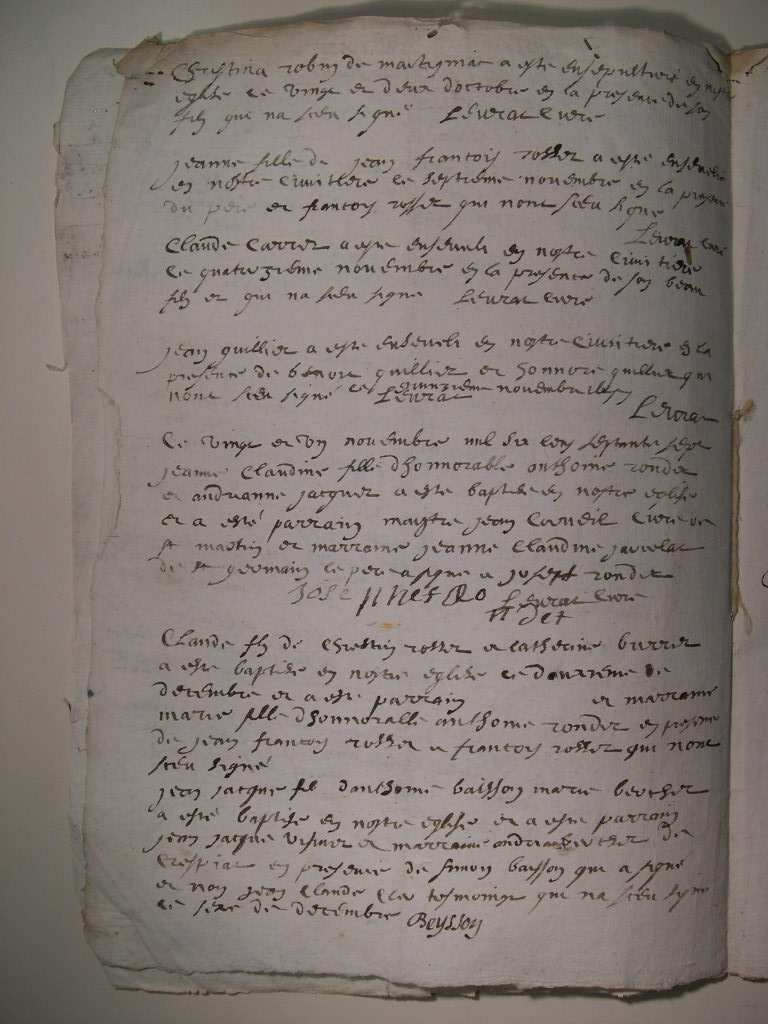 Chrestina robin de martigniac a este ensepulturé en nostre
eglise ce vingt et deux doctobre en la presence de son
filz qui na sceu signé Levrat Curé
jeanne fille de jean françois rosset a este enseveli
en nostre cimitiere ce septieme novembre en la presence
du pere et françois rosset qui nont sceu signé
Levrat Curé
Claude Carrer a este enseveli en nostre cimitiere
ce quatorzieme novembre en la presence de son beau
filz et qui na sceu signe Levrat Curé
jean quillier a este enseveli en nostre cimitiere en la
presence de benoit quillier et honnore quillier qui
nont sceu signé ce quinzieme novembre
Levrat
Levrat
Ce vingt et un novembre mil six cens septante sept
jeanne Claudine fille dhonnorable anthoine rondet
et andrianne jacquet a este baptise en nostre eglise
et a esté parrain maistre jean Curé de
st martin et marraine jeanne Claudine
de st germain le pere a signe et joseph rondet
Levrat Curé
Claude filz de Chrestin rosset et Catherine burrer
a este baptise en nostre eglise ce douzieme de
decembre et a este parrain et marraine
marie fille dhonnoralle anthoine rondet en presence
de jean françois rosset et françois rosset qui nont
sceu signé
jean jacque filz danthoine baisson marie bercher
a esté baptise en nostre eglise et a este parrain
jean jacque et marraine de
Crespiat en presence de simon baisson qui a signé
et non jean Claude tesmoingt qui na sceu signe
ce seze de decembre Beysson